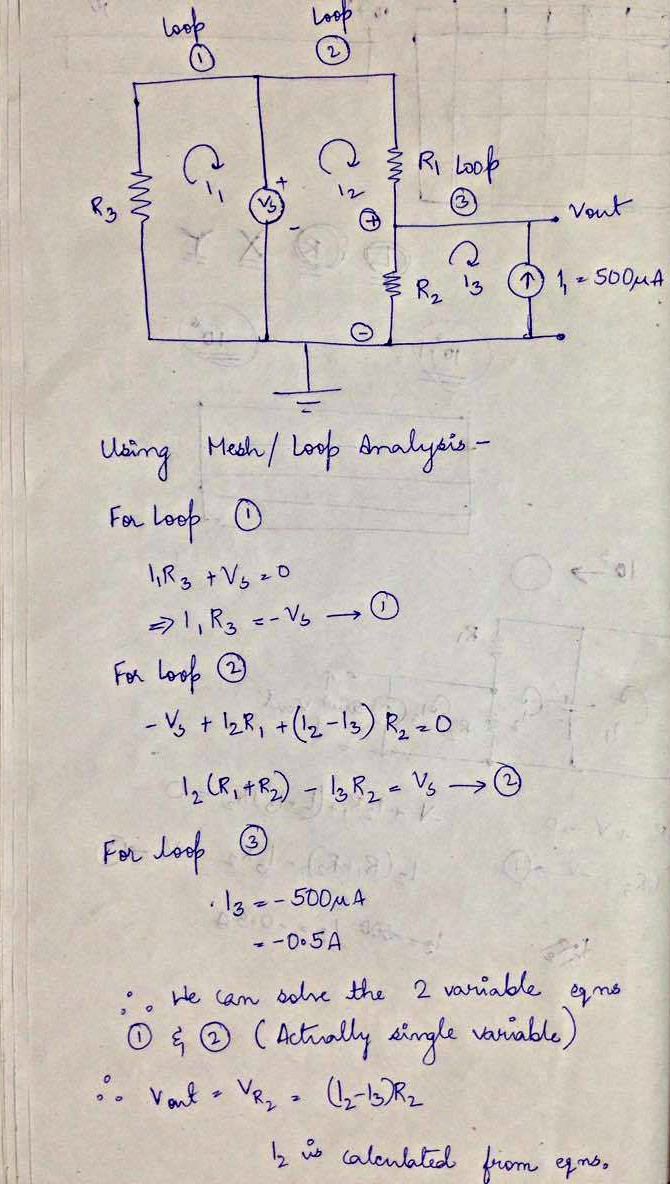 Loop Loop
① ②
R3 I1 VS + - I2 R1 Loop
③
+ Vout
R2 I3 I1 = 500μA
-
Using Mesh/Loop Analysis -
For Loop ①
I1R3 + VS = 0
⇒ I1R3 = -VS → ①
For Loop ②
-VS + I2R1 + (I2-I3) R2 = 0
I2(R1+R2) - I3R2 = VS → ②
For loop ③
I3 = -500μA
= -0.5A
∴ We can solve the 2 variable eqns
① & ② (Actually single variable)
∴ Vout = VR2 = (I2-I3)R2
I2 is calculated from eqns.